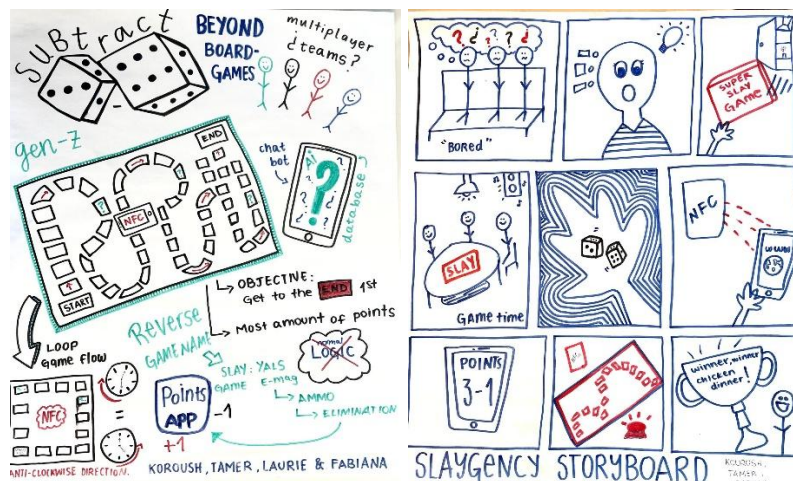 SUBtract
BEYOND
BOARD-
GAMES
multiplayer
¿ teams?
gen-z
END
NFC
START
chat
bot
AI
?
database
OBJECTIVE:
Get to the END 1st
Most amount of points
LOOP
Game flow
Reverse
GAME NAME
SLAY: YALS
GAME E-mag
AMMO
ELIMINATION
normal
LOGIC
NFC
=
Points
APP
-1
+1
ANTI-CLOCKWISE DIRECTION.
KOROUSH, TAMER, LAURIE & FABIANA
? ¿ ? ¿ ?
"BORED"
SUPER
SLAY
GAME
SLAY
GAME time
NFC
POINTS
3-1
winner, winner
chicken
dinner!
SLAYGENCY STORYBOARD
KOUROUSH,
TAMER,